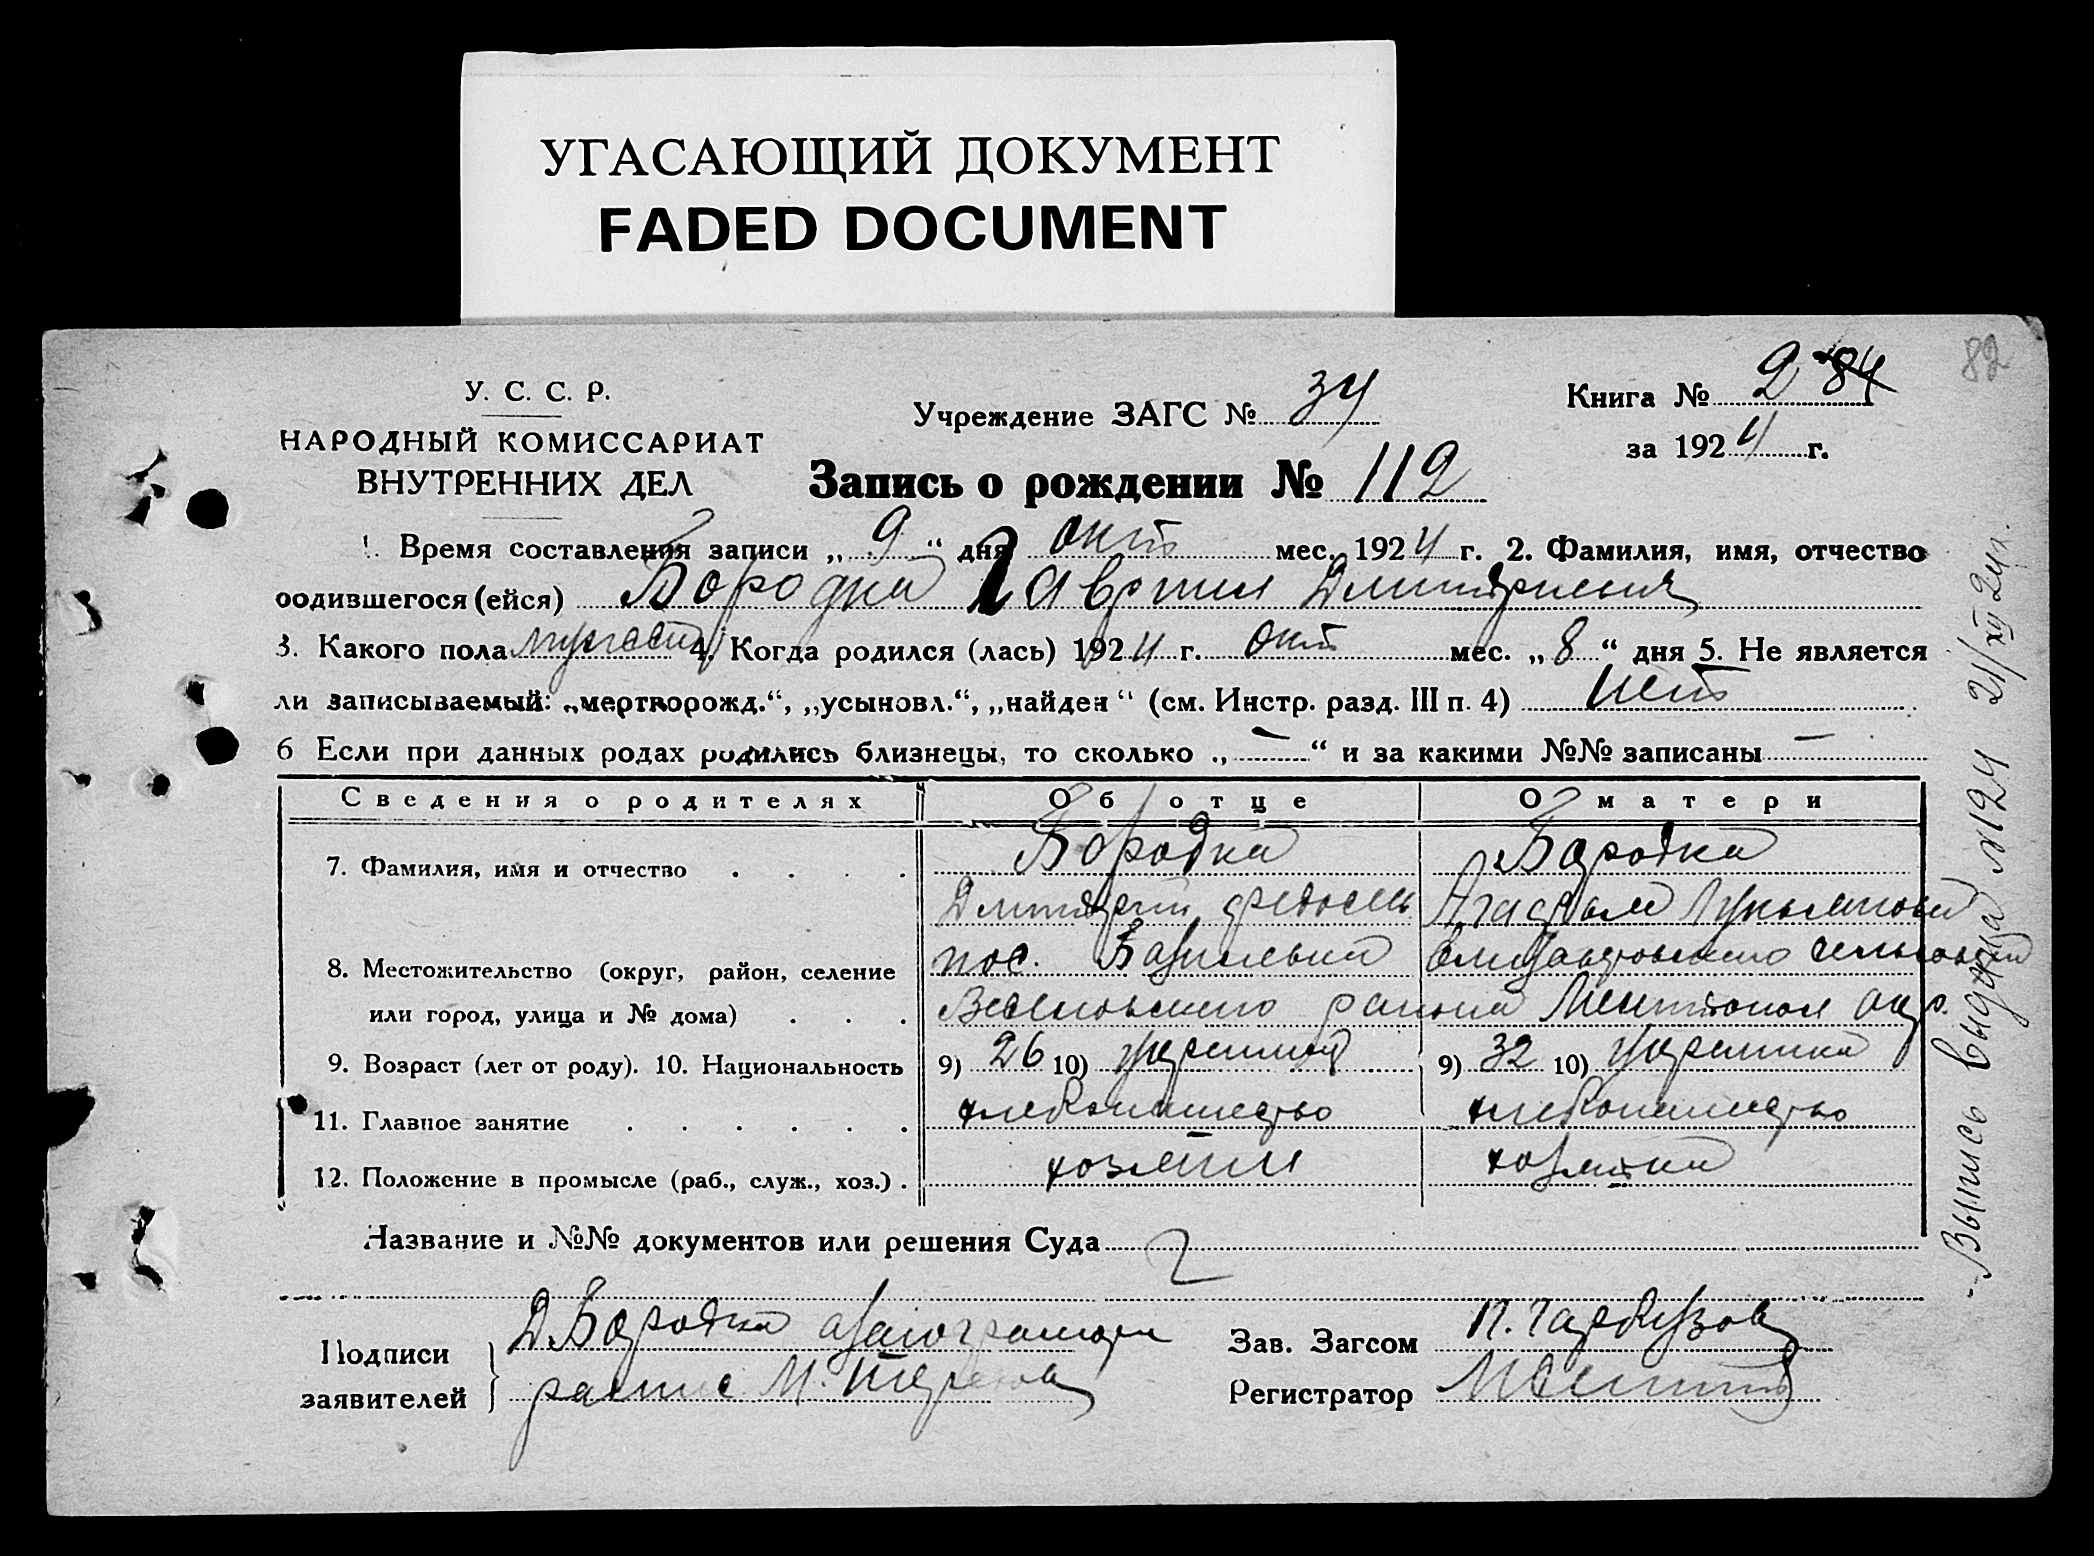 УГАСАЮЩИЙ ДОКУМЕНТ
FADED DOCUMENT
82
У. С. С. Р.
НАРОДНЫЙ КОМИССАРИАТ
ВНУТРЕННИХ ДЕЛ
Учреждение ЗАГС № 34
Книга № 2 84
за 1924 г.
Запись о рождении № 112
1. Время составления записи „ 9 “ дня окт мес. 1924 г. 2. Фамилия, имя, отчество
родившегося (ейся) Бородка Гаврил Дмитриев
3. Какого пола мужеск 4. Когда родился (лась) 1924 г. окт мес. „ 8 “ дня 5. Не является
ли записываемый: „мертворожд.“, „усыновл.“, „найден“ (см. Инстр. разд. III п. 4) нет
6 Если при данных родах родились близнецы, то сколько „ — “ и за какими №№ записаны —
Сведения о родителях Об отце О матери
7. Фамилия, имя и отчество Бородка Бородка
Дмитрий Агафья
8. Местожительство (округ, район, селение пос.
или город, улица и № дома) района окр.
9. Возраст (лет от роду). 10. Национальность 9) 26 10) 9) 32 10)
11. Главное занятие хлебопашество хлебопашество
12. Положение в промысле (раб., служ., хоз.) хозяин хозяйка
Название и №№ документов или решения Суда
Подписи заявителей Д. Бородка
Зав. Загсом П. Гарбузов
Регистратор
Выпись выдана №124 21/XII 24 г.